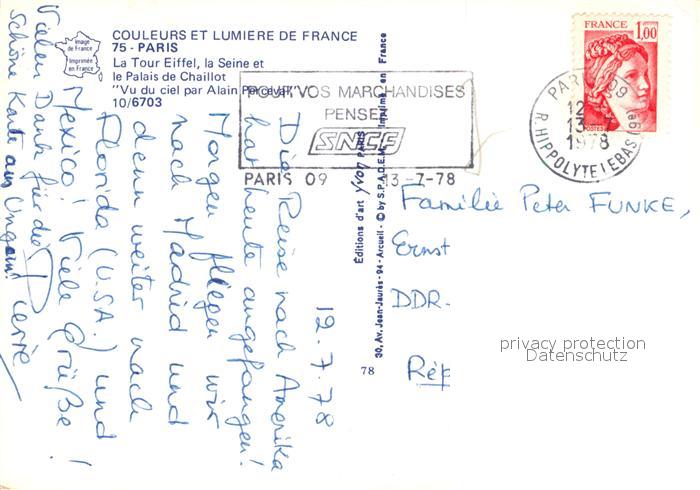 COULEURS ET LUMIERE DE FRANCE
75 - PARIS
La Tour Eiffel, la Seine et
le Palais de Chaillot
"Vu du ciel par Alain Perceval"
10/6703
Image
de France
Imprimée
en France
POUR VOS MARCHANDISES
PENSEZ
SNCF
PARIS 09 13-7-78
FRANCE
1,00
POSTES
PARIS 09
12
13-7
1978
R. HIPPOLYTE LEBAS (9e)
Editions d'art YVON PARIS
30, Av. Jean-Jaurès - 94 - Arcueil - © by S.P.A.D.E.M. Imprimé en France
78
12.7.78
Die Reise nach Amerika
hat heute angefangen!
Morgen fliegen wir
nach Madrid und
denn weiter nach
Florida (U.S.A.) und
Mexico! Viele Grüße!
Pierre
Vielen Dank für die
schöne Karte aus Ungarn!
Familie Peter FUNKE,
Ernst
DDR.
Rép
privacy protection
Datenschutz